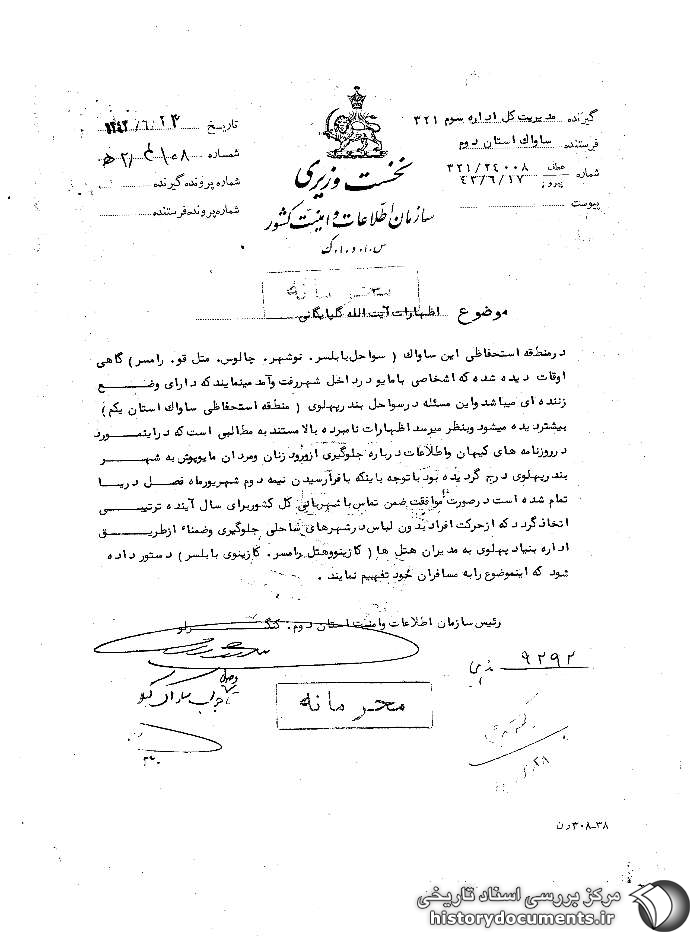 گیرنده مدیریت کل اداره سوم ۳۲۱
فرستنده ساواک استان دوم
شماره عطف ۳۲۱/۲۴۰۰۸
پیرو ۴۳/۶/۱۷
پیوست
تاریخ ۱۳۴۳/۶/۲۴
شماره
شماره پرونده گیرنده
شماره پرونده فرستنده
نخست وزیری
سازمان اطلاعات و امنیت کشور
س.ا.و.ا.ک
محرمانه
موضوع اظهارات آیت الله گلپایگانی
درمنطقه استحفاظی این ساواک ( سواحل بابلسر، نوشهر، چالوس، متل قو، رامسر) گاهی
اوقات دیده شده که اشخاصی بامایو درداخل شهررفت وآمد مینمایند که دارای وضع
زننده ای میباشد واین مسئله درسواحل بندرپهلوی ( منطقه استحفاظی ساواک استان یکم)
بیشتردیده میشود وبنظر میرسد اظهارات نامبرده بالا مستند به مطالبی است که دراینمورد
درروزنامه های کیهان واطلاعات درباره جلوگیری ازورود زنان ومردان مایوپوش به شهر
بندرپهلوی درج گردیده بود باتوجه باینکه بافرارسیدن نیمه دوم شهریورماه فصل دریا
تمام شده است درصورت موافقت ضمن تماس باشهربانی کل کشوربرای سال آینده ترتیبی
اتخاذگردد که ازحرکت افراد بدون لباس درشهرهای ساحلی جلوگیری وضمناً ازطریق
اداره بنیاد پهلوی به مدیران هتل ها ( کازینووهتل رامسر، کازینوی بابلسر) دستور داده
شود که اینموضوع رابه مسافران خود تفهیم نمایند .
رئیس سازمان اطلاعات وامنیت استان دوم. کنگرلو
۹۲۹۲
محرمانه
۳۸-۳۰۸ ن
مرکز بررسی اسناد تاریخی
historydocuments.ir